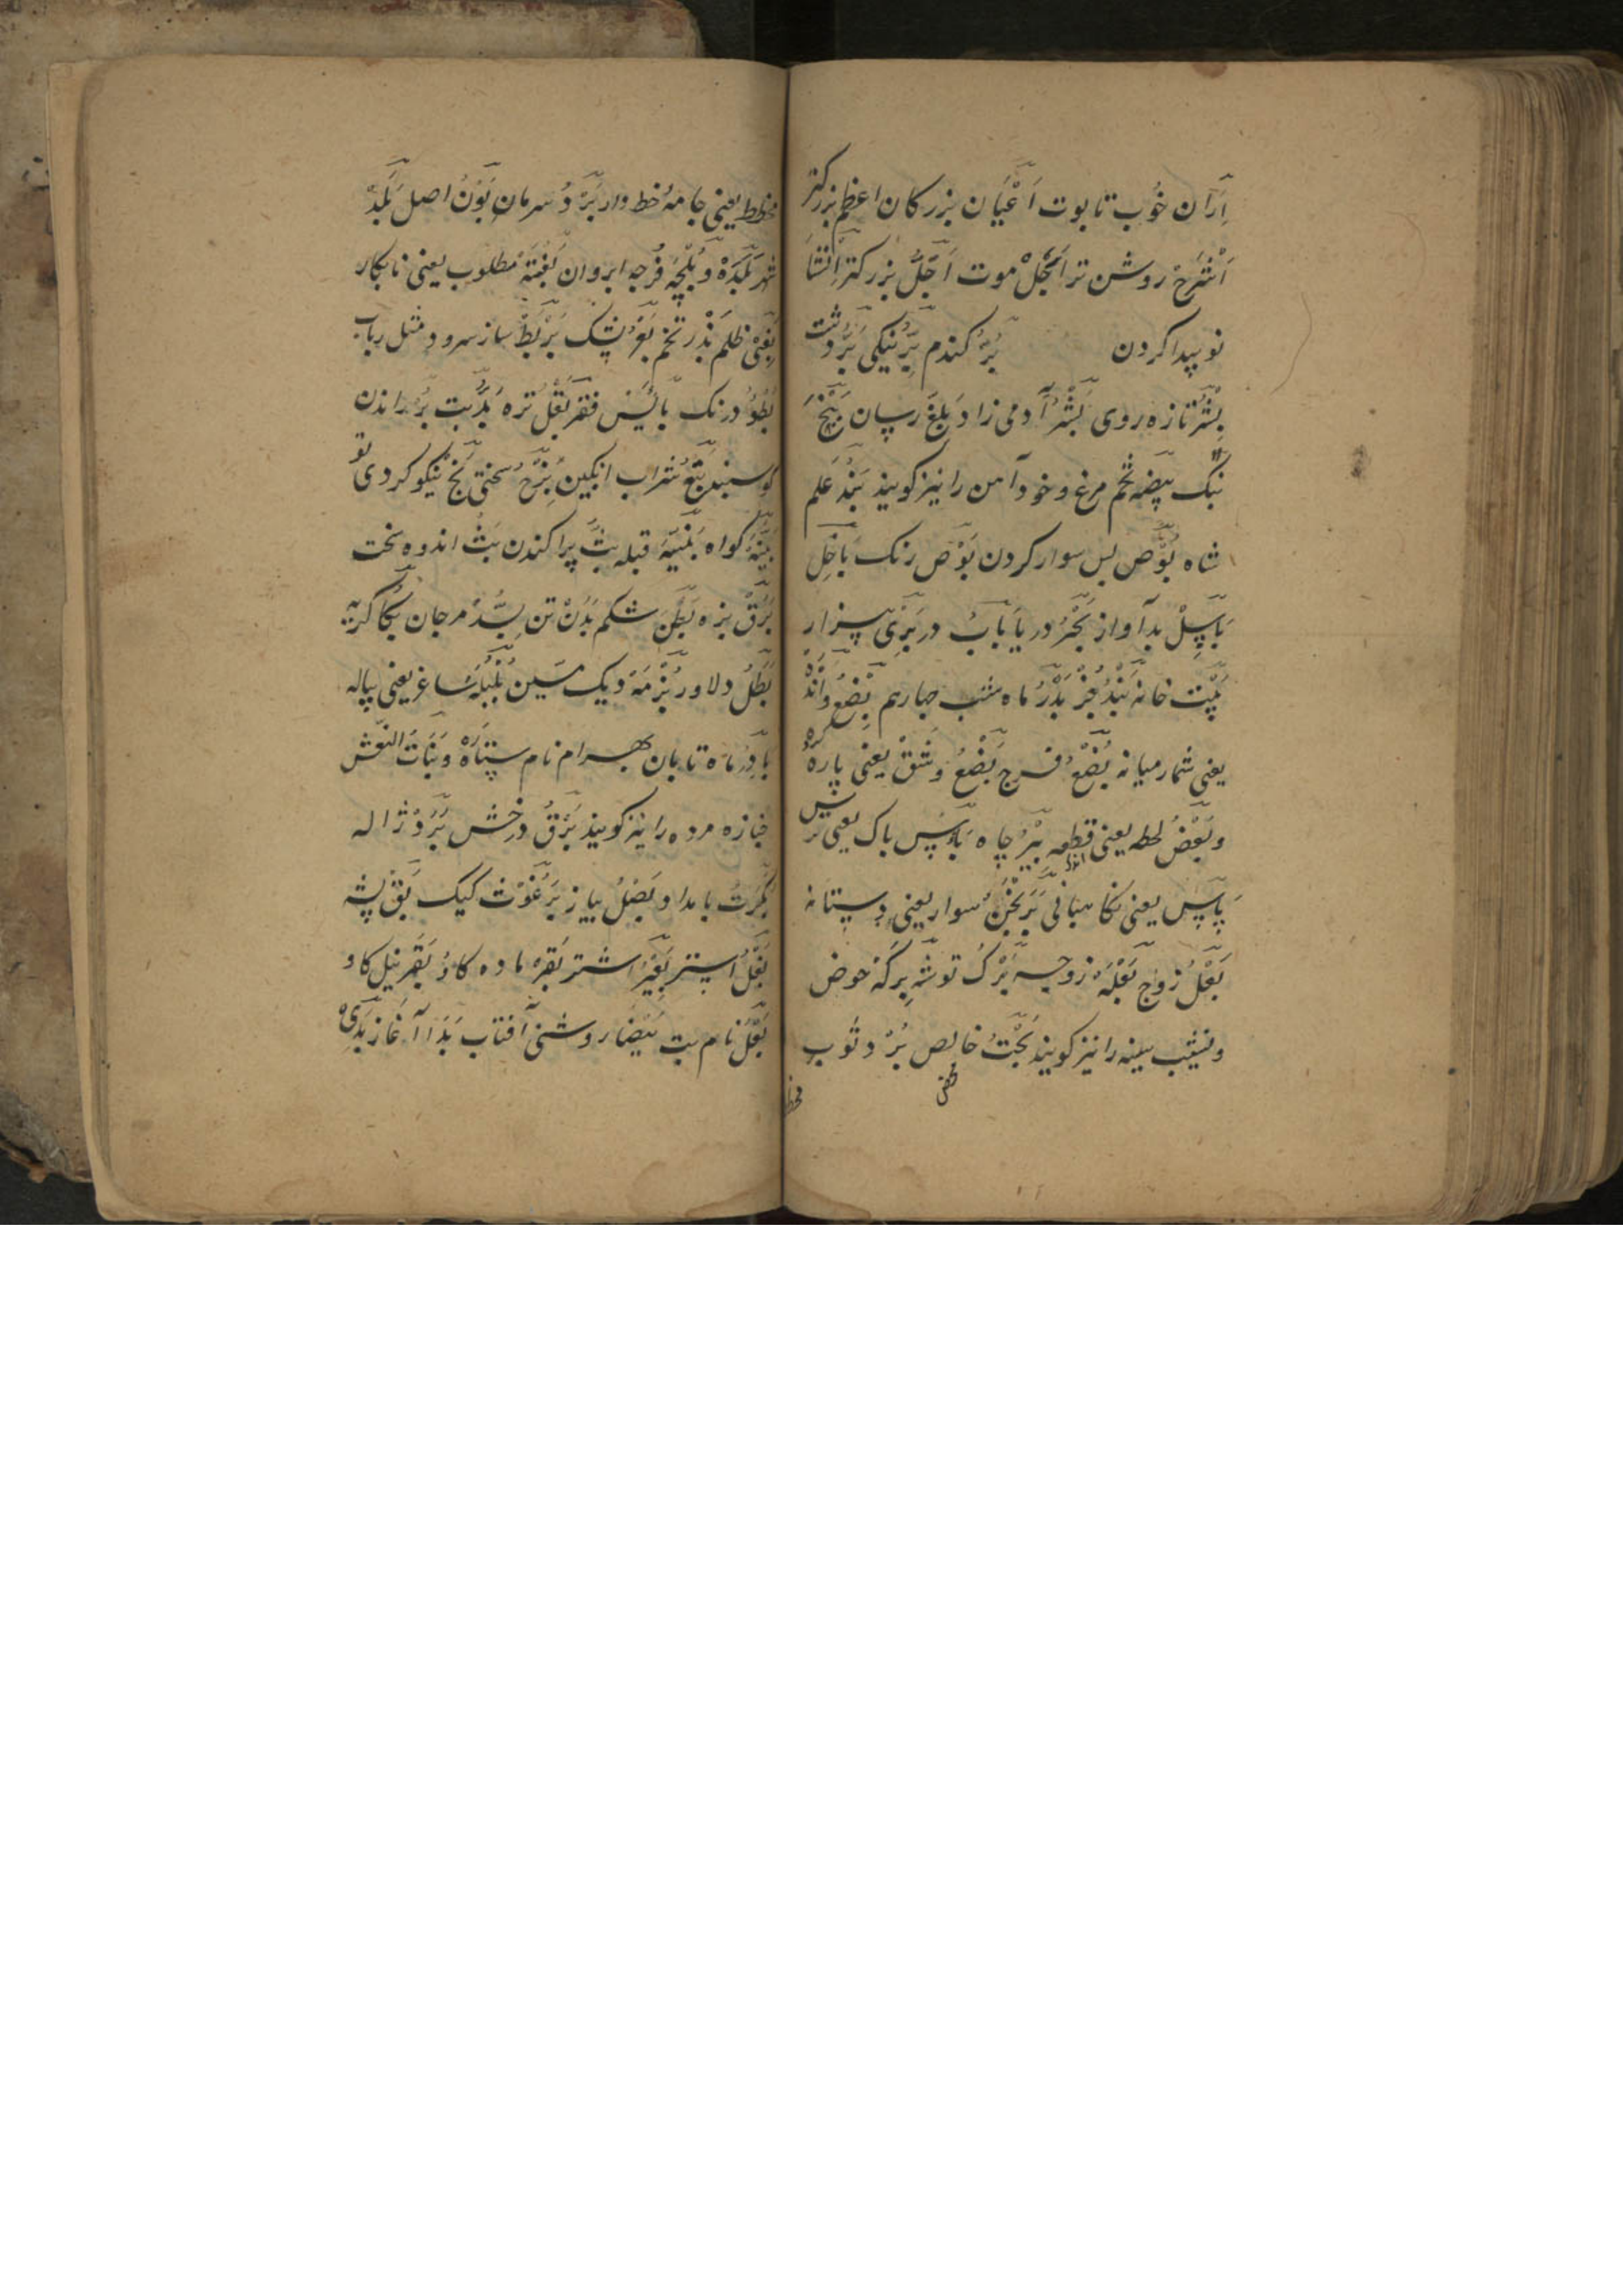 اِرَان خُوب تابوت اَعْیَان بزرکان اعظم بزرکتر
اَشْرَحْ روشن تر اَجَلْ موت اَجَلُّ بزرکتر اِنْشَا
نو پیدا کردن بُرّ کندم بِرّ نیکی بَرّ دشت
بِشْر تازه روی بَشَر آدمی زاد
بنک بیضه تخم مرغ و خود آهن را نیز کویند بَنْد عَلم
شاه بَوْص پس سوار کردن بَوْص رنک باخِل
بد آواز بَحْر دریا بَابُ در بَرِیّ بیزار
بَیْت خانه بَدْرُ ماه شب چهارم بِضْعُ و اَنْد
یعنی شمار میانه بُضْعُ فرج بَضْعُ و شَقّ یعنی پاره
و بَعْضُ لحظه یعنی قطعه بِئْر چاه بَاس باک یعنی ترس
پاس یعنی نکاهبانی بَرَنْجَن سوار یعنی دستانه
بَعْل زوج بَعْلَة زوجه بَرْک توشه بِرکَه حوض
و نشیب سینه را نیز کویند بَحْتُ خالص بُرْد ثوب
مخطط یعنی جامهٔ خط دار بَرْدُ سرمان بَوْنُ اصل بَلَد
شهر بَلْدَه و بُلْجَه فُرجه ابروان بُغْیَة مطلوب یعنی نابکار
بَغْی ظلم بَذْر تخم بَعْر پشک بَرْبَط ساز سرود مثل رباب
بُطُؤ درنک بائس فقر بَقْل تره بُدّ بت بَرّ راندن
کوسبند بِتْع شراب انکبین بَرْح سختی بَخ نیکو کردی تو
بَیِّنَه کواه بَنِیَّه قبله بَثّ پراکندن بَثّ اندوه سخت
بَرَق بزه بَطْن شکم بَدَنْ تن بُسَّد مرجان بُکا کریه
بَطَلُ دلاور بُرْمَة دیک مسین بُلْبُلَه ساغر یعنی پیاله
بادِر ماه تابان بهرام نام ستاره و بَنَات النعش
جنازه مرده را نیز کویند بَرْق درخش بَرَدْ ژاله
بُکْرَت بامداد بَصَلُ پیاز بَرْغُوْث کیک بَقّ پشه
بَغْلُ استر بَعِیْر اشتر بَقَرَه ماده کاو بَقَر نیل کاو
بَعْلُ نام بت بَیْضَا روشنی آفتاب بَدَا آغاز